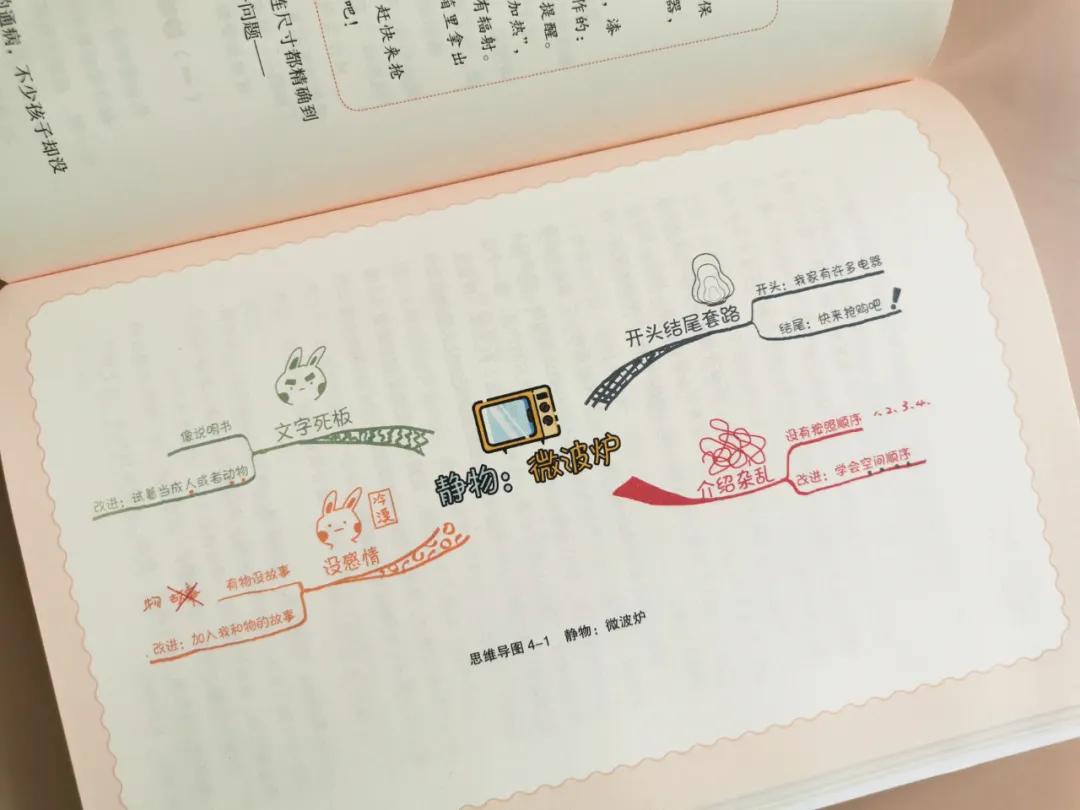 保
器，
，漆
作的：
提醒。
加热”，
有辐射。
里拿出
赶快来抢
吧！
尺寸都精确到
问题——
通病，不少孩子却没
开头结尾套路
开头：我家有许多电器
结尾：快来抢购吧！
介绍杂乱
没有按照顺序 1、2、3、4、
改进：学会空间顺序
文字死板
像说明书
改进：试着当成人或者动物
冷漠
没感情
物
有物没故事
改进：加入我和物的故事
静物：微波炉
思维导图 4-1 静物：微波炉